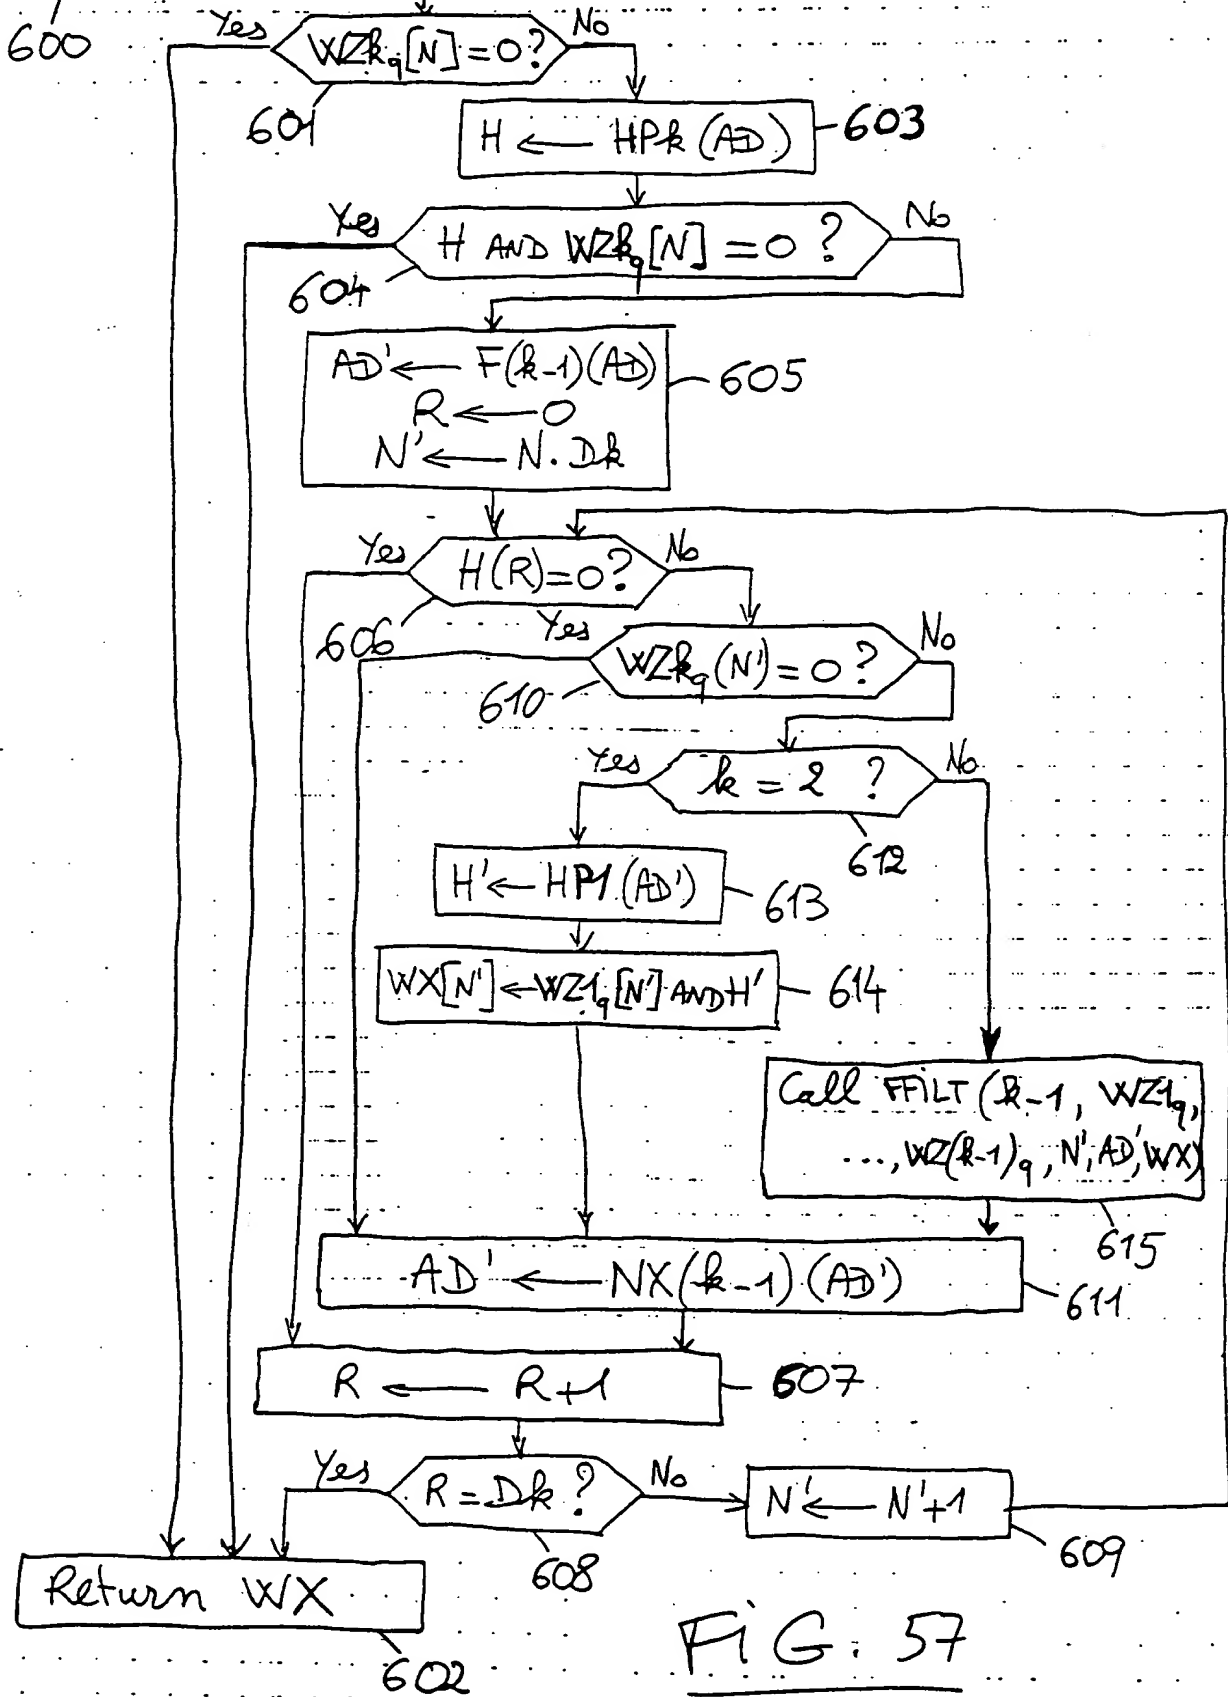 600
Yes
WZkq[N]=0?
No
601
H ← HPk(AD)
603
Yes
H AND WZkq[N]=0?
No
604
AD' ← F(k-1)(AD)
R ← 0
N' ← N.Dk
605
Yes
H(R)=0?
No
606
Yes
WZkq(N')=0?
No
610
Yes
k=2 ?
No
612
H' ← HP1.(AD')
613
WX[N'] ← WZ1q[N'] AND H'
614
Call FFILT(k-1, WZ1q,
..., WZ(k-1)q, N', AD', WX)
615
AD' ← NX(k-1)(AD')
611
R ← R+1
607
Yes
R=Dk?
No
608
N' ← N'+1
609
Return WX
602
FiG. 57